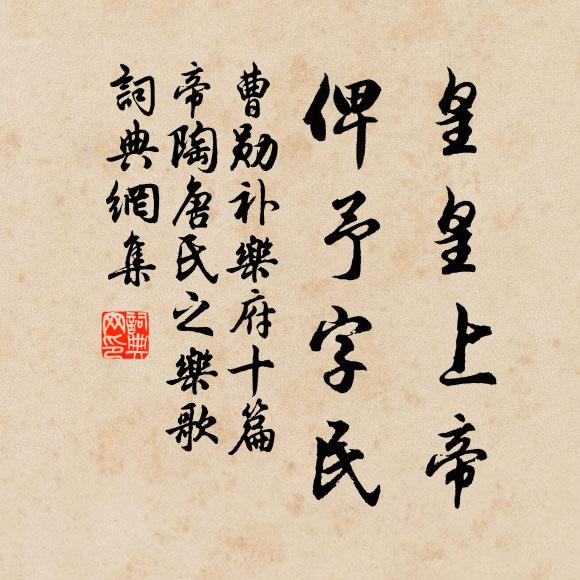 皇皇上帝
俾予字民
曹勛补樂府十篇
帝陶唐氏之樂歌
詞典網集
詞典